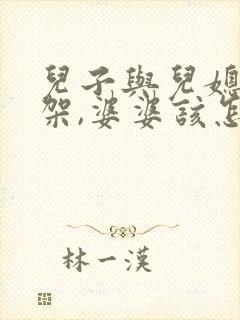 兒子與兒媳
架,婆婆該怎
林一漢